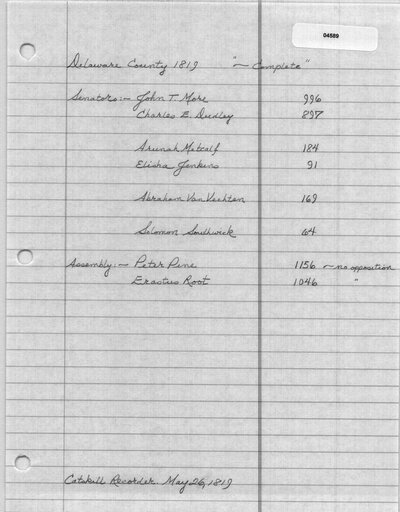 04589
Delaware County 1819 "~ Complete"
Senators:~ John T. More 996
Charles E. Dudley 897
Arunah Metcalf 184
Elisha Jenkins 91
Abraham Van Vechten 169
Solomon Southwick 64
Assembly:~ Peter Pine 1156 ~ no opposition
Erastus Root 1046 "
Catskill Recorder. May 26, 1819